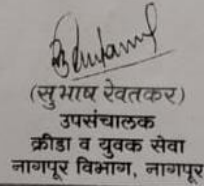 (सुभाष रेवतकर)
उपसंचालक
क्रीडा व युवक सेवा
नागपूर विभाग, नागपूर